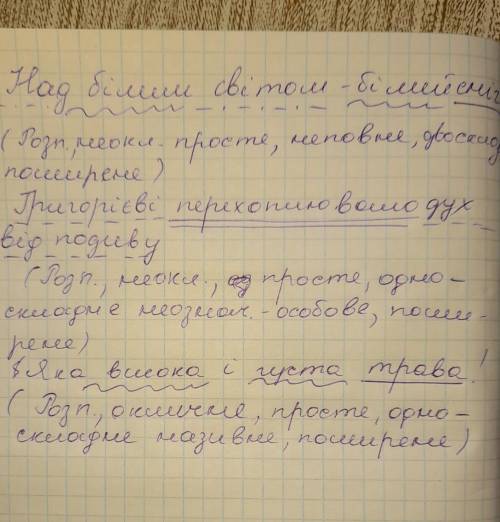 Над білим світом - білий сніг
(Розп., неокл. просте, неповне, двосклад
поширене)
Григорієві перехоплювало дух
від подиву
(Розп., неокл., просте, одно-
складне неознач. - особове, поши-
рене)
Яка висока і густа трава!
(Розп., окличне, просте, одно-
складне називне, поширене)